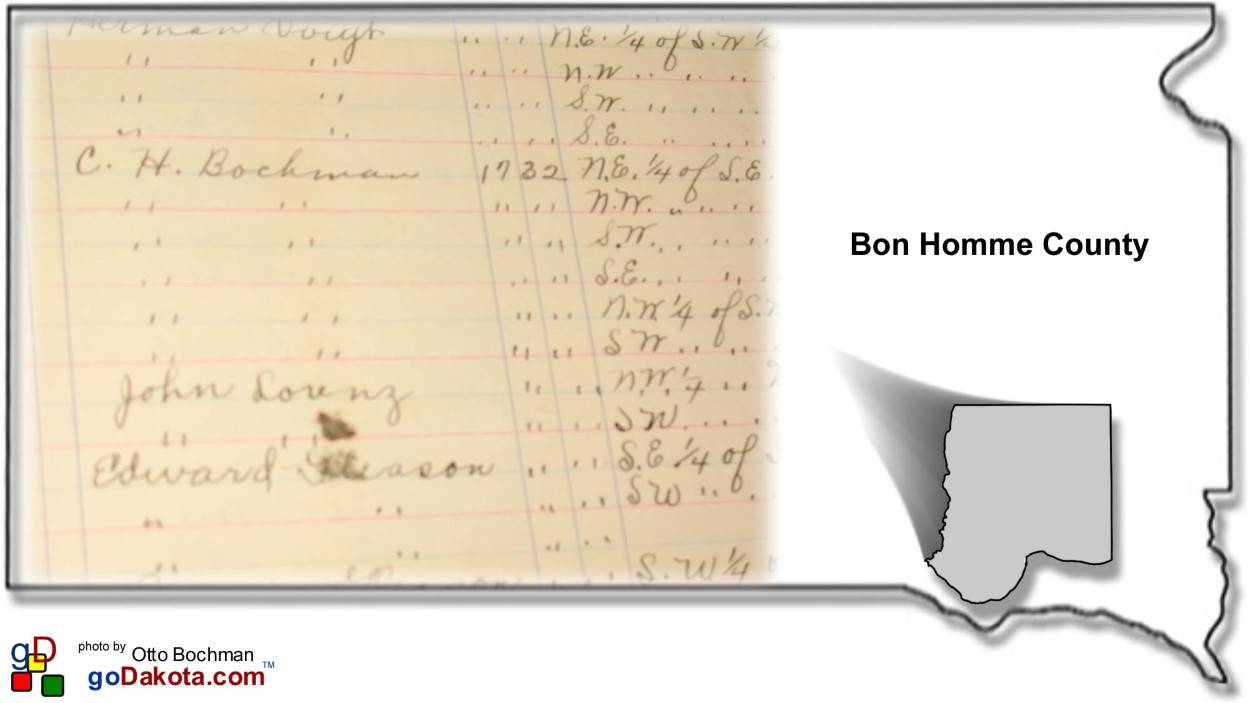 Herman Voigt " " N.E. 1/4 of S.W 1/4
" " " " N.W " " " "
" " " " S.W. " " " "
" " " " S.E. " " "
C. H. Bochman 1732 N.E. 1/4 of S.E
" " " " N.W. " " " "
" " " " S.W. " " "
" " " " S.E. " " "
" " " " N.W 1/4 of S.
" " " " S W " " "
John Lorenz " " N.W. 1/4 " "
" " " " S W " " "
Edward " " S.E 1/4 of
" " " " S W " of
" " "
S. W 1/4
Bon Homme County
photo by Otto Bochman
gD goDakota.com™